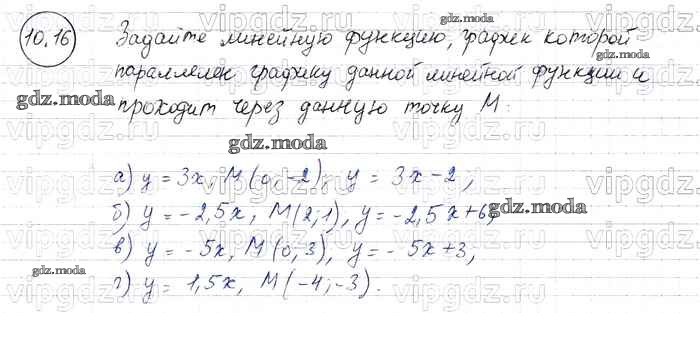 10.16 Задайте линейную функцию, график которой
параллелен графику данной линейной функции и
проходит через данную точку М:
а) y = 3x, M(0; -2); y = 3x - 2;
б) y = -2,5x, M(2; 1), y = -2,5x + 6;
в) y = -5x, M(0; 3), y = -5x + 3,
г) y = 1,5x, M(-4; -3).
gdz.moda
gdz.moda
gdz.moda
gdz.moda
gdz.moda
gdz.moda
gdz.moda
vipgdz
vipgdz.
vipgdz.
vipgdz.